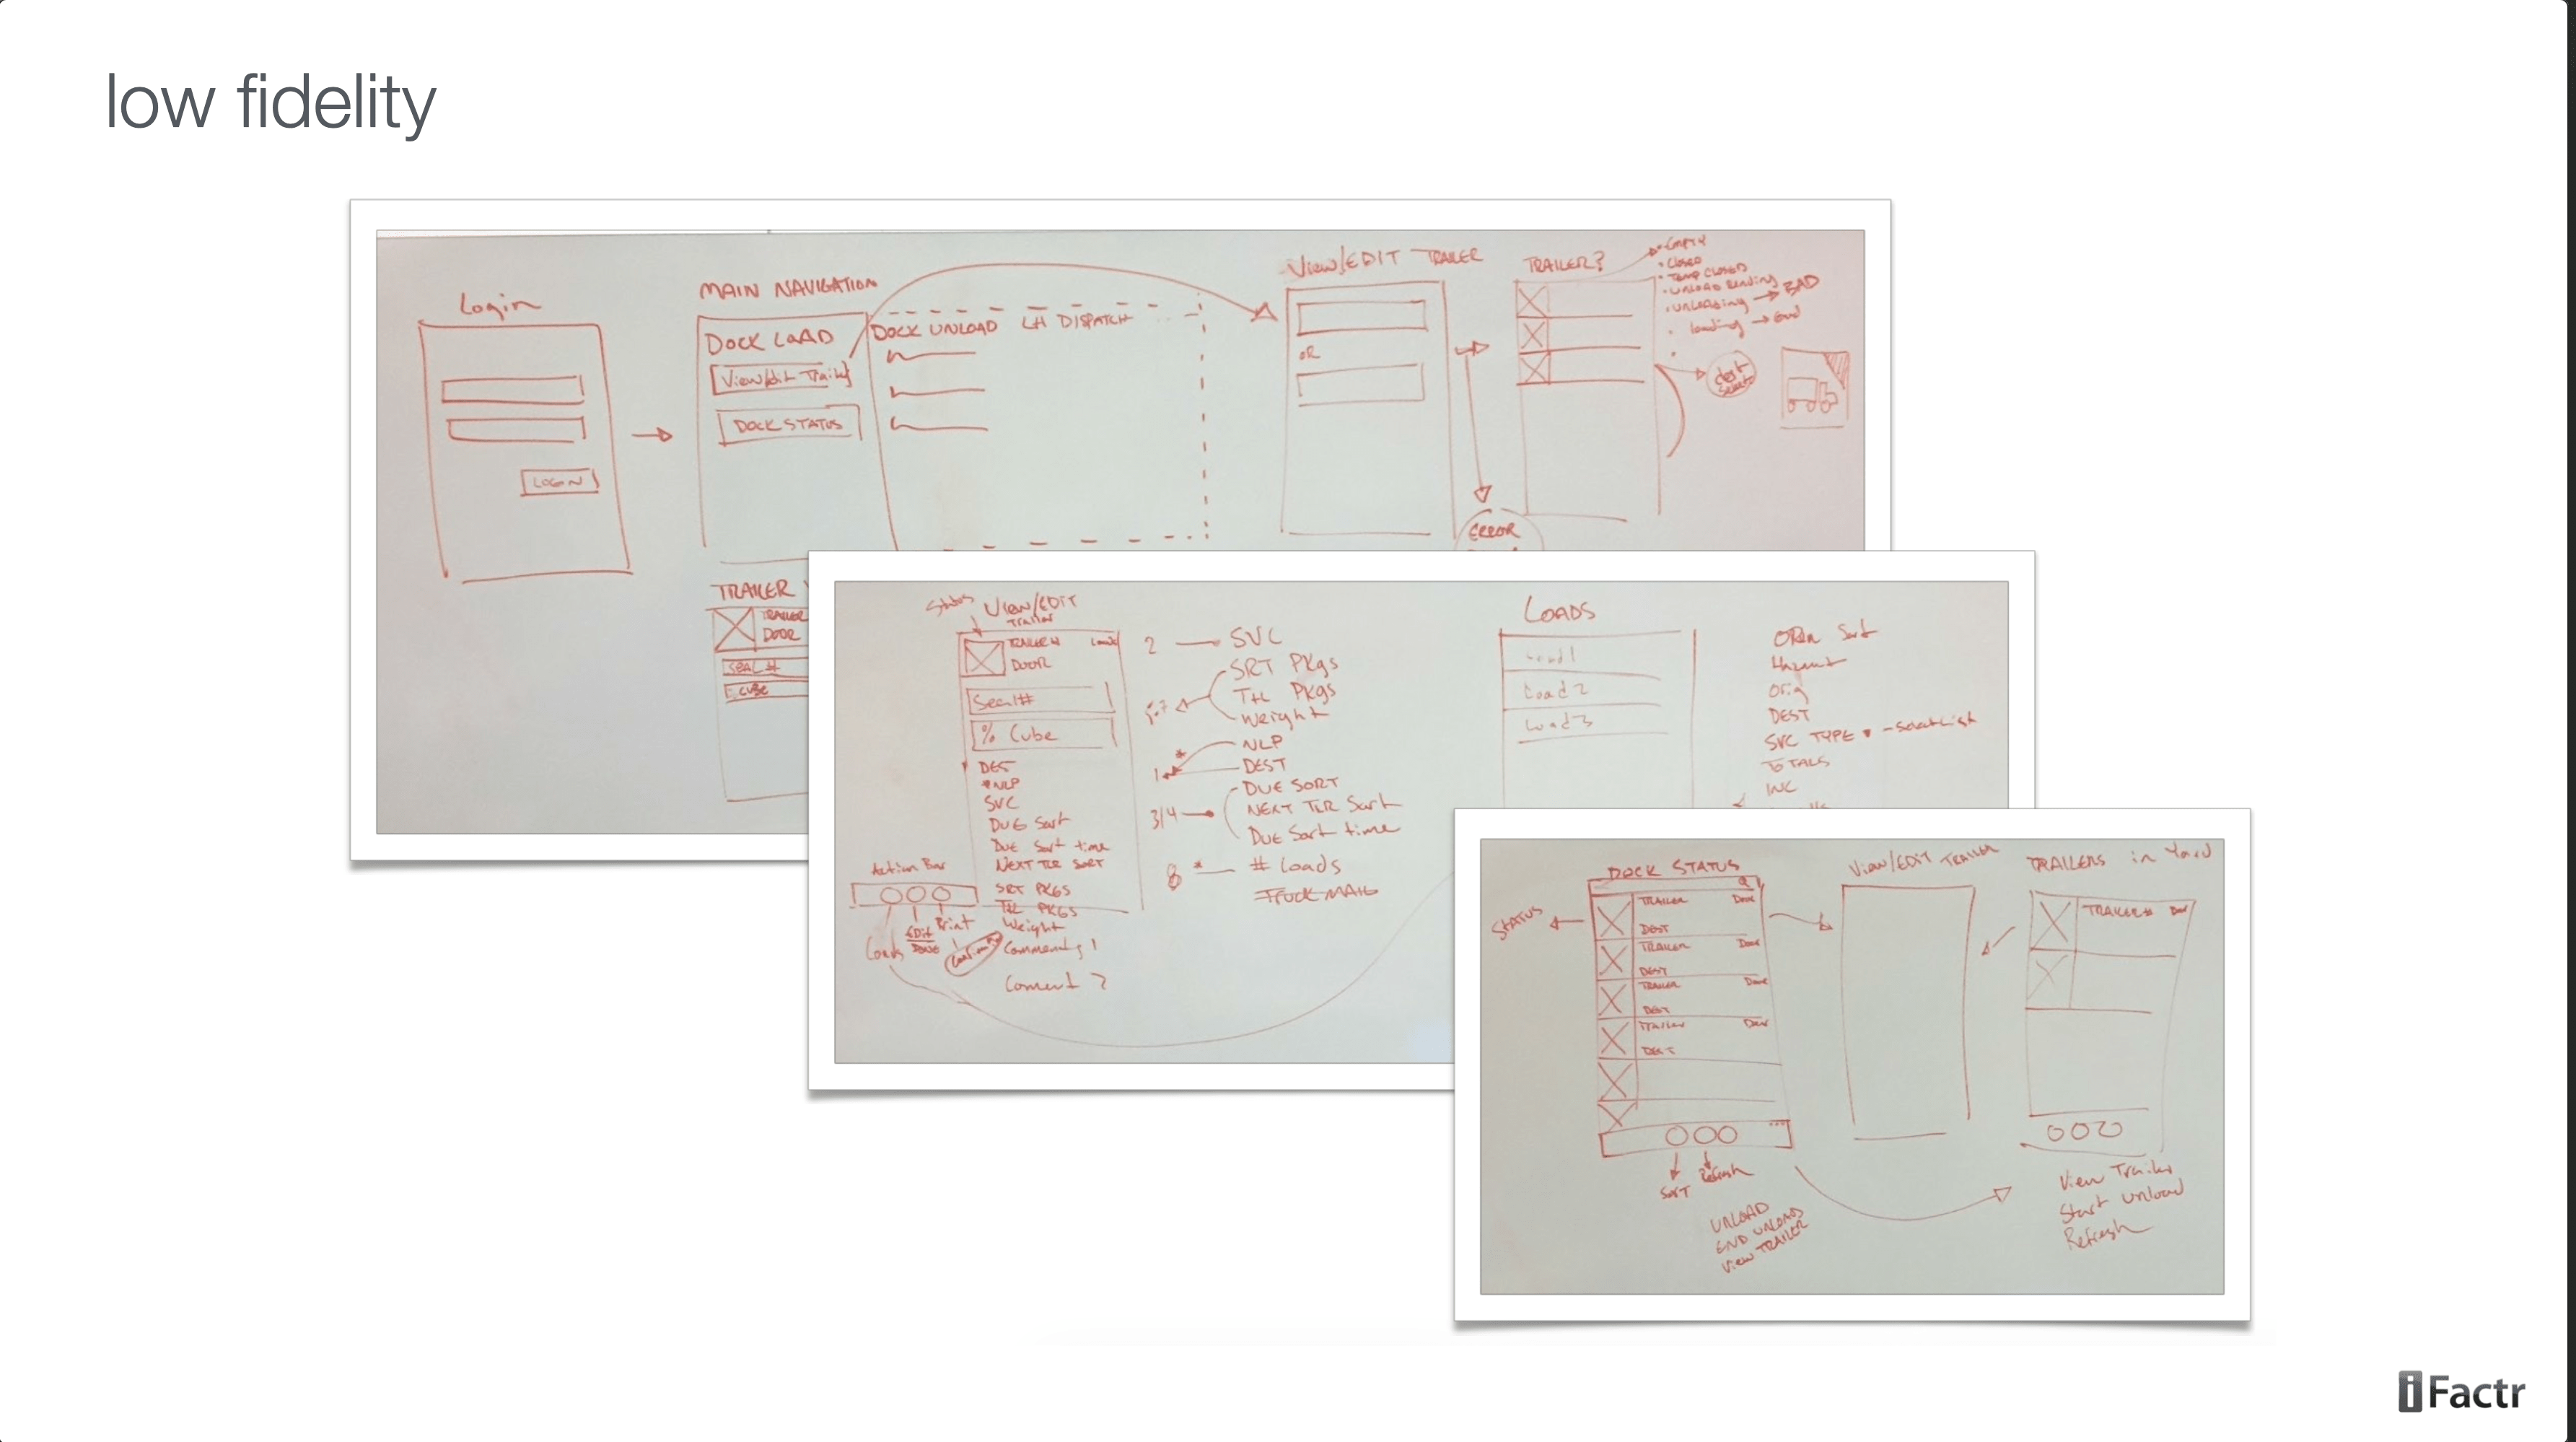 low fidelity
Login
LOGIN
MAIN NAVIGATION
DOCK LOAD
View/Edit Trailer
DOCK STATUS
DOCK UNLOAD
LH DISPATCH
VIEW/EDIT TRAILER
OR
ERROR
TRAILER?
• EMPTY
• CLOSED
• TEMP CLOSED
• UNLOAD Pending
• UNLOADING → BAD
• loading → Good
TRAILER
TRAILER
DOOR
SEAL #
CUBE
Status
VIEW/EDIT
Trailer
TRAILER#
DOOR
Seal#
% Cube
DEST
*NLP
SVC
DUE Sort
Due Sort time
NEXT TLR SORT
SRT PKGS
TLR PKGS
Weight
Comments 1
Comment 2
Action Bar
Loads
Edit
Done
Print
2 — SVC
SRT PKgs
PKgs
Weight
NLP
1
DEST
DUE SORT
3/4
NEXT TLR Sort
Due Sort time
8 * — # Loads
LOADS
Load 1
Load 2
Load 3
Sort
Orig
DEST
SVC TYPE
TOTALS
INC
DOCK STATUS
STATUS
TRAILER Door
DEST
TRAILER Door
DEST
TRAILER Door
DEST
Trailer Door
DEST
SORT
Refresh
UNLOAD
END UNLOAD
View TRAILER
VIEW/EDIT TRAILER
TRAILERS in Yard
TRAILER#
View Trailer
Start Unload
Refresh
iFactr